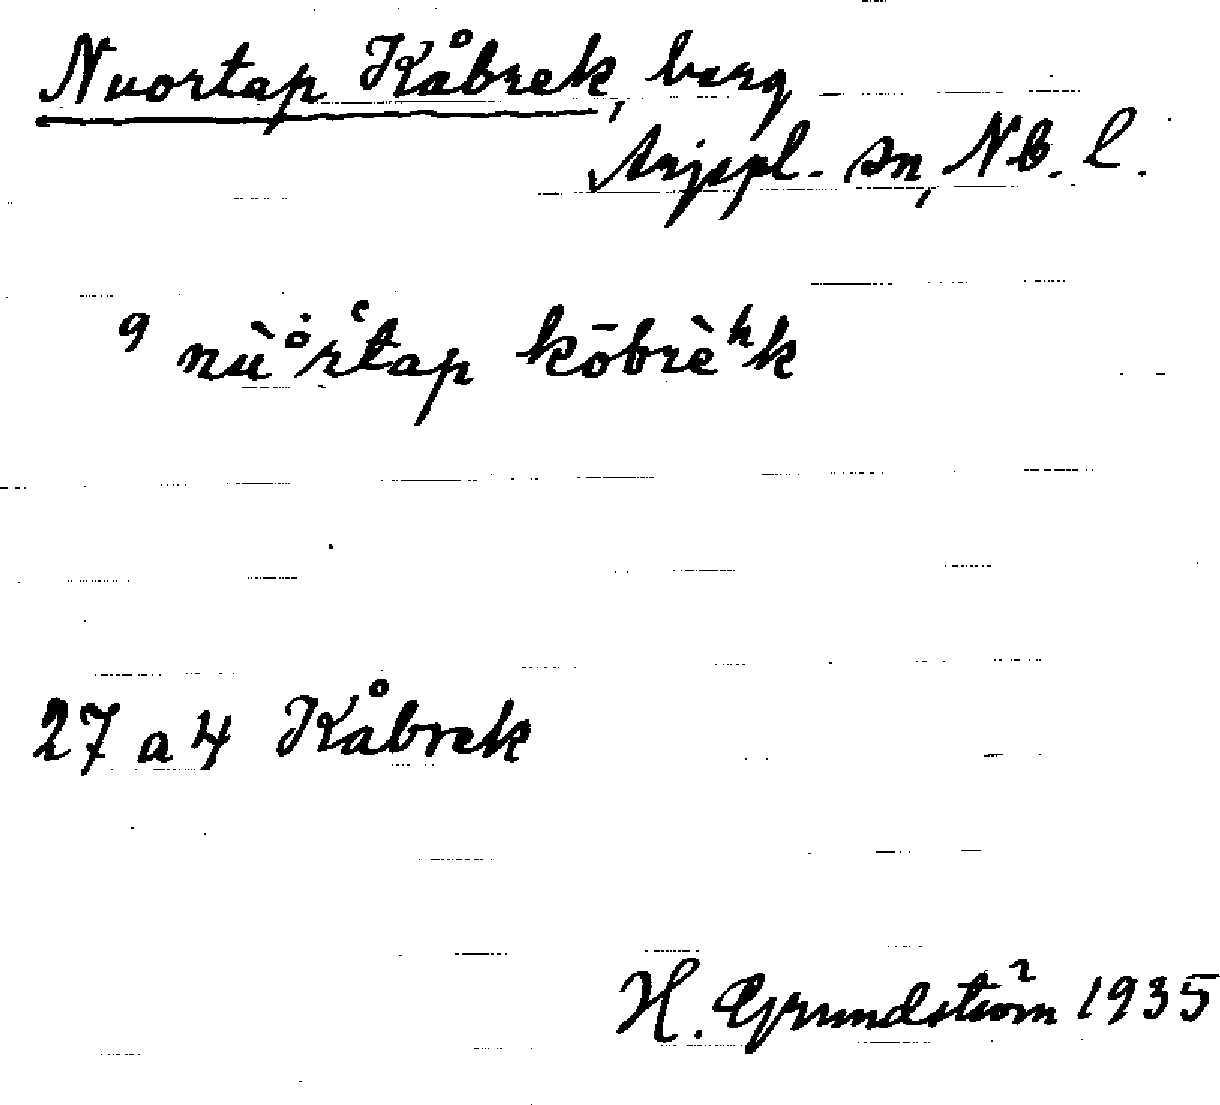 Nuortap Kåbrek, berg
Arjepl. sn, Nb. l.
9 nùårtap kōbrèʰk
27 a 4 Kåbrek
H. Grundström 1935